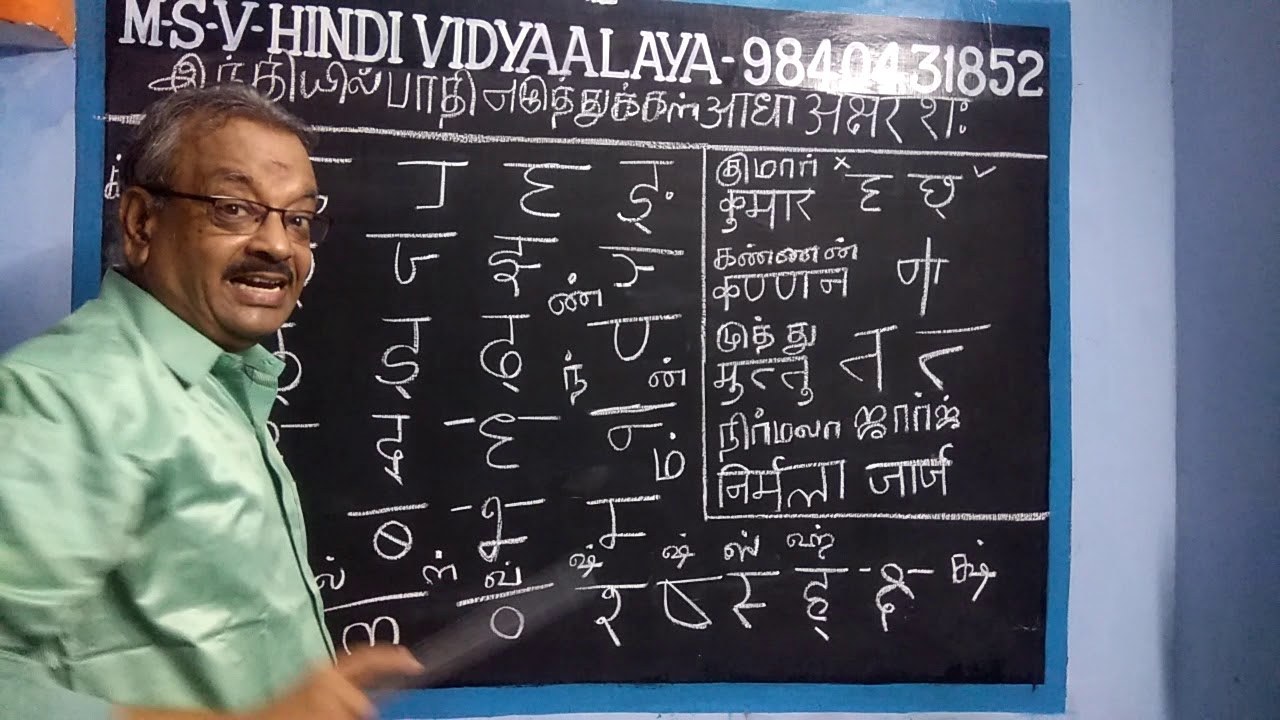 M-S-V-HINDI VIDYAALAYA-9840431852
இந்தியில் பாதி எழுத்துக்கள் आधा अक्षर शः
ग् घ् ङ्
ज् झ् ञ्
ड् ढ् ண் ण्
द् ध् ந் ன் न् ம்
ब् भ् म्
ல் ள் வ் ஷ் ஷ் ஸ் ஹ்
ल् व् श् ष् स् ह् क्ष् க்ஷ்
குமார் × घ छ् ✓
कुमार
கண்ணன்
कण्णन ण
முத்து
मुत्तु त त्
நிர்மலா ஜார்ஜ்
निर्मला जार्ज